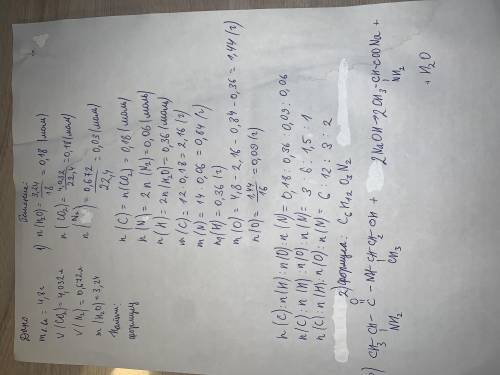 Дано
m в-ва = 4,8 г
V (CO₂) = 4,032 л
V (N₂) = 0,672 л
m (H₂O) = 3,24
Найти:
формулу
Решение:
1) n(H₂O) = 3,24/18 = 0,18 (моль)
n(CO₂) = 4,032/22,4 = 0,18 (моль)
n(N₂) = 0,672/22,4 = 0,03 (моль)
n(C) = n(CO₂) = 0,18 (моль)
n(N) = 2n(N₂) = 0,06 (моль)
n(H) = 2n(H₂O) = 0,36 (моль)
m(C) = 12·0,18 = 2,16 (г)
m(N) = 14·0,06 = 0,84 (г)
m(H) = 0,36 (г)
m(O) = 4,8 - 2,16 - 0,84 - 0,36 = 1,44 (г)
n(O) = 1,44/16 = 0,09 (г)
n(C) : n(H) : n(O) : n(N) = 0,18 : 0,36 : 0,09 : 0,06
n(C) : n(H) : n(O) : n(N) = 3 : 6 : 1,5 : 1
n(C) : n(H) : n(O) : n(N) = 6 : 12 : 3 : 2
2) формула: C₆H₁₂O₃N₂
CH₃CH - C - NH - CHCH₂OH + 2NaOH → 2CH₃-CH-COONa +
NH₂ O CH₃ NH₂
+ H₂O